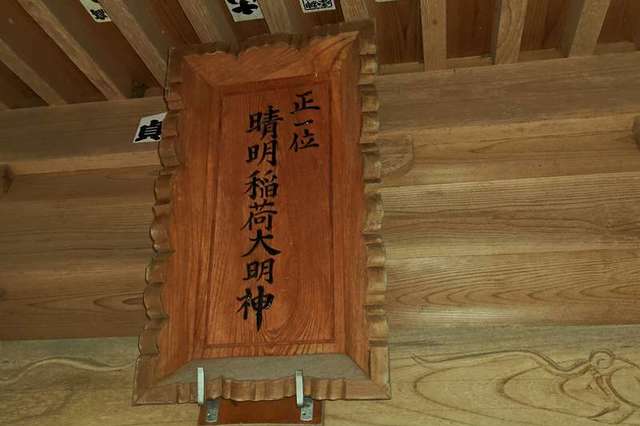 正一位
晴明稲荷大明神
貞